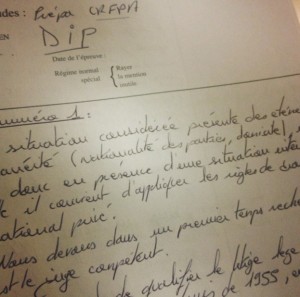 udes : Prépa CRFPA
EN DIP
Date de l'épreuve :
Régime normal
spécial
Rayer
la mention
inutile
numéro 1 :
situation considérée présente des élém
(nationalité des parties, domicile).
donc en présence d'une situation inter
il convient d'appliquer les règles de dro
ational privé.
Nous devons dans un premier temps rech
est le juge compétent.
de qualifier le litige
de 1955, en